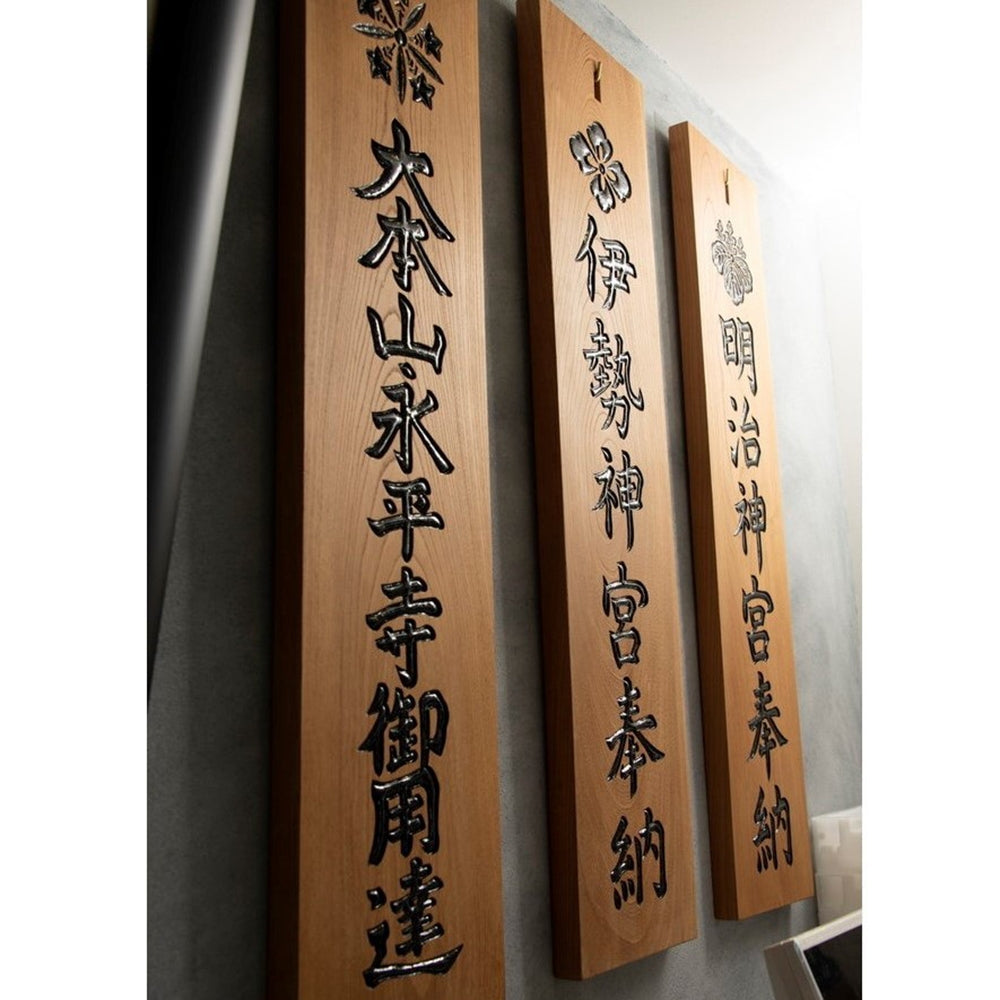 大本山永平寺御用達
伊勢神宮奉納
明治神宮奉納